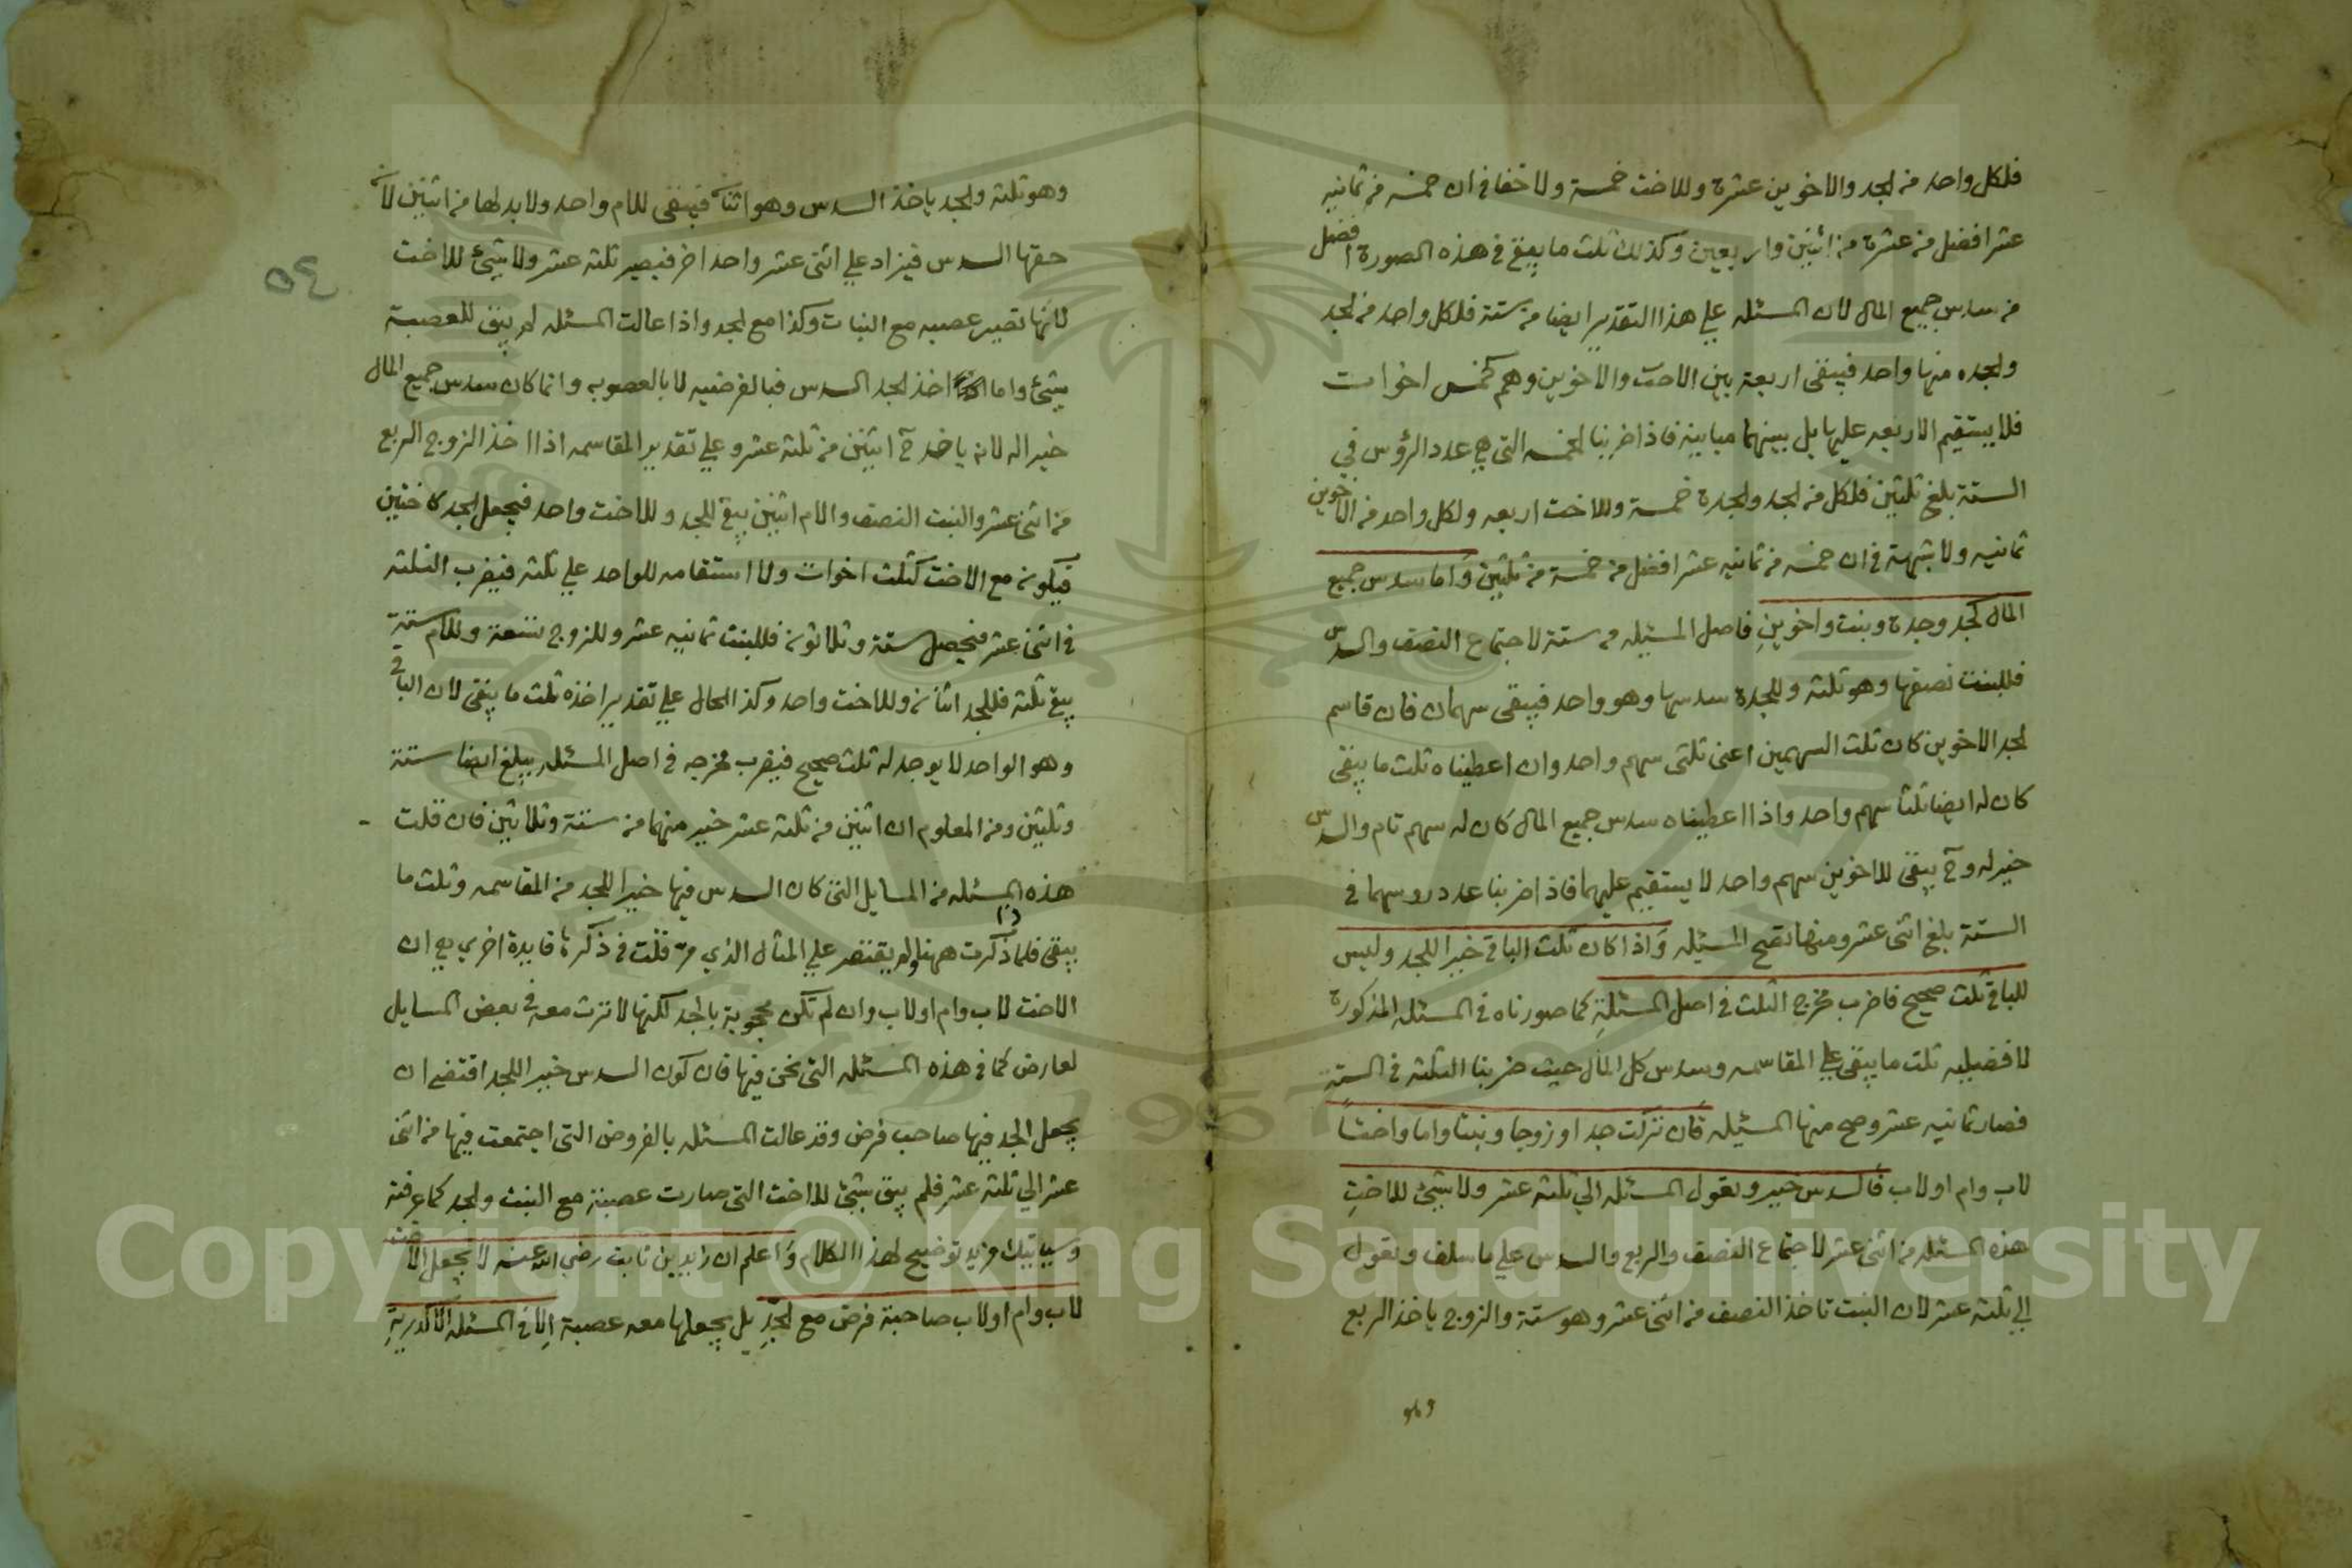 فلكل واحد من الجد والاخوين عشرة وللاخت خمسة ولا خفا في ان خمسه من ثمانيه
عشر افضل من عشرة من اثنين واربعين وكذلك ثلث ما يبقى في هذه الصورة افضل
من سدس جميع المال لان المسئله علي هذا التقدير ايضا من ستة فلكل واحد من الجد
والجده منها واحد فيبقى اربعة بين الاخت والاخوين وهم كخمس اخوات
فلا يستقيم الاربعه عليها بل بينهما مباينة فاذا ضربنا الخمسه التي هي عدد الرؤس في
الستة بلغ ثلثين فلكل من الجد والجدة خمسة وللاخت اربعه ولكل واحد من الاخوين
ثمانيه ولا شبهة في ان خمسه من ثمانيه عشر افضل من خمسة من ثلثين واما سدس جميع
المال كجد وجدة وبنت واخوين فاصل المسئله من ستة لاجتماع النصف والسدس
فللبنت نصفها وهو ثلثة وللجدة سدسها وهو واحد فيبقى سهمان فان قاسم
الجد الاخوين كان ثلث السهمين اعنى ثلثى سهم واحد وان اعطيناه ثلث ما يبقى
كان له ايضا ثلثا سهم واحد واذا اعطيناه سدس جميع المال كان له سهم تام والسدس
خير له وح يبقى للاخوين سهم واحد لا يستقيم عليهما فاذا ضربنا عدد روسهما في
الستة بلغ اثنى عشر ومنها تصح المسئله واذا كان ثلث الباقي خيرا للجد وليس
للباقي ثلث صحيح فاضرب مخرج الثلث في اصل المسئلة كما صورناه في المسئله المذكورة
لافضيليه ثلث ما يبقى علي المقاسمه وسدس كل المال حيث ضربنا الثلثه في الستة
فصار ثمانيه عشر وصح منها المسئله فان تركت جدا وزوجا وبنتا واما واختا
لاب وام او لاب فالسدس خير وتعول المسئله الي ثلثه عشر ولا شيئ للاخت
هذه المسئله من اثنى عشر لاجتماع النصف والربع والسدس علي ما سلف وتعول
الي ثلثة عشر لان البنت تاخذ النصف من اثنى عشر وهو ستة والزوج ياخذ الربع
وهو
وهو ثلثة والجد ياخذ السدس وهو اثنان فيبقى للام واحد ولا بد لها من اثنين لان
حقها السدس فيزاد علي اثنى عشر واحد اخر فيصير ثلثة عشر ولا شيئ للاخت
لانها تصير عصبه مع البنات وكذا مع الجد واذا عالت المسئله لم يبق للعصبة
شيئ واما اخذ الجد السدس فبالفرضيه لا بالعصوبه وانما كان سدس جميع المال
خير اله لانه ياخذ ح اثنين من ثلثة عشر وعلي تقدير المقاسمه اذا اخذ الزوج الربع
من اثنى عشر والبنت النصف والام اثنين يبقى للجد وللاخت واحد فيجعل الجد كاختين
فيكون مع الاخت كثلث اخوات ولا استقامه للواحد علي ثلثه فيضرب الثلثه
في اثنى عشر فيحصل ستة وثلاثون فللبنت ثمانيه عشر وللزوج تسعة وللام ستة
يبقى ثلثة فللجد اثنان وللاخت واحد وكذا الحال علي تقدير اخذه ثلث ما يبقى لان الباقي
وهو الواحد لا يوجد له ثلث صحيح فيضرب مخرجه في اصل المسئله يبلغ ايضا ستة
وثلثين ومن المعلوم ان اثنين من ثلثة عشر خير منهما من ستة وثلاثين فان قلت
هذه المسئله من المسايل التى كان السدس فيها خيرا للجد من المقاسمه وثلث ما
يبقى فلما ذكرت ههنا ولم يقتصر علي المثال الذي مر قلت في ذكرها فايدة اخري هي ان
الاخت لاب وام او لاب وان لم تكن محجوبة بالجد لكنها لا ترث معه في بعض المسايل
لعارض كما في هذه المسئله التى نحن فيها فان كون السدس خيرا للجد اقتضى ان
يجعل الجد فيها صاحب فرض وقد عالت المسئله بالفروض التى اجتمعت فيها من اثنى
عشر الي ثلثة عشر فلم يبق شيئ للاخت التى صارت عصبة مع البنت والجد كما عرفته
وسياتيك مزيد توضيح لهذا الكلام واعلم ان زايد بن ثابت رضي الله عنه لا يجعل الاخت
لاب وام او لاب صاحبة فرض مع الجد بل يجعلها معه عصبة الا في المسئلة الاكدرية
٥٤
Copyright © King Saud University
1957